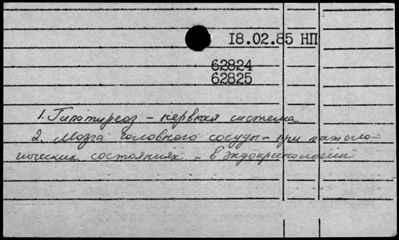 18.02.85 НП
62824
62825
1. Гипотиреоз – нервная система
2. Мозга головного сосуды – при патоло-
гических состояниях – в эндокринологии